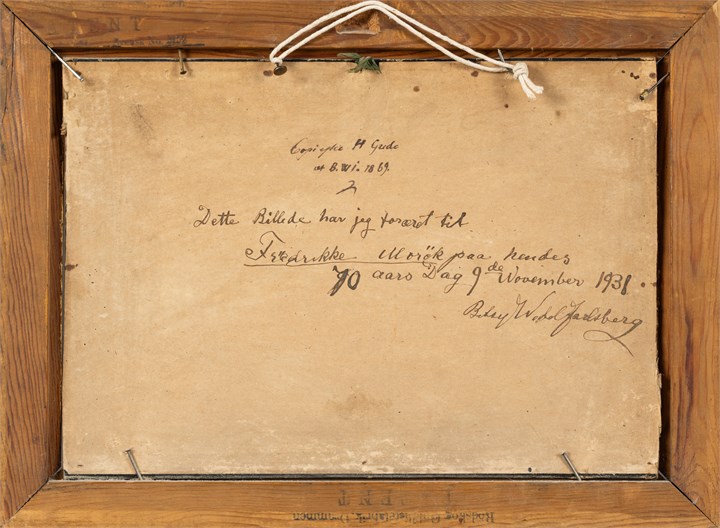 H Gude
1869.
Dette Billede har jeg foræret til
Fredrikke Morök paa hendes
70 aars Dag 9de November 1931
Betsy Wedel Jarlsberg